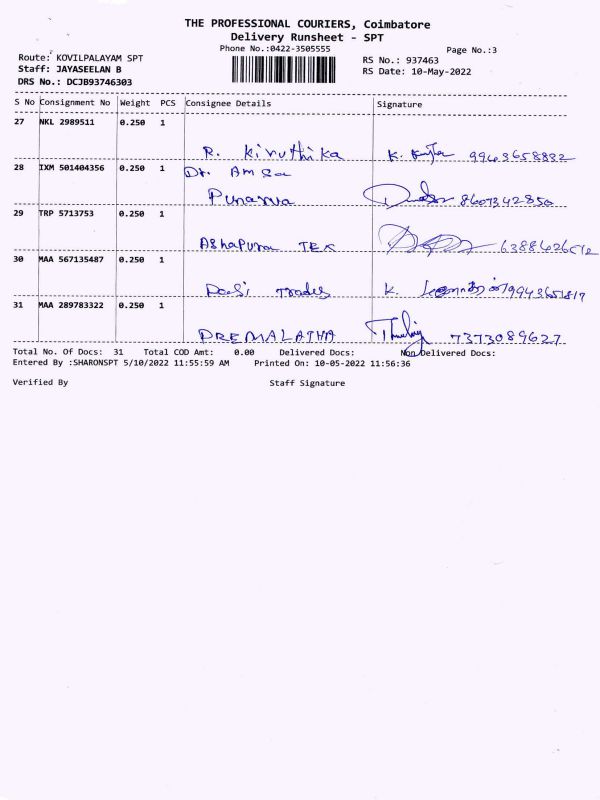 THE PROFESSIONAL COURIERS, Coimbatore
Delivery Runsheet - SPT
Phone No.:0422-3505555
Page No.:3
Route: KOVILPALAYAM SPT
RS No.: 937463
Staff: JAYASEELAN B
RS Date: 10-May-2022
DRS No.: DCJB93746303
S No Consignment No Weight PCS Consignee Details Signature
27 NKL 2989511 0.250 1
R. Kiruthika K. 9943658832
28 IXM 501404356 0.250 1 Dr. Amsa
Punarva 8607342850
29 TRP 5713753 0.250 1
AshaPura TEX
30 MAA 567135487 0.250 1
Desi Trades K. 9943651817
31 MAA 289783322 0.250 1
PREMALATHA 7373089627
Total No. Of Docs: 31 Total COD Amt: 0.00 Delivered Docs: Non Delivered Docs:
Entered By :SHARONSPT 5/10/2022 11:55:59 AM Printed On: 10-05-2022 11:56:36
Verified By Staff Signature